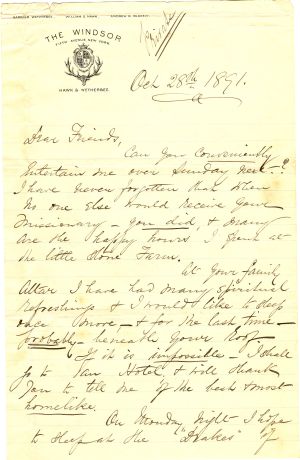 GARDNER WETHERBEE. WILLIAM S. HAWK.
THE WINDSOR
FIFTH AVENUE NEW YORK.
HAWK & WETHERBEE
Private
Oct 28th 1891.
Dear Friends,
Can you conveniently
Entertain me over Sunday next-?
I have never forgotten that when
No one else would receive your
Missionary - you did, & many
are the happy hours I spent at
the little Stone Farm.
At your family
Altar I have had many spiritual
refreshings & I would like to sleep
once more - & for the last time -
probably - beneath your roof.
If it is impossible - I shall
go to Hotel & will thank
you to tell me of the best & most
homelike.
On Monday night I hope
to sleep at the "Drakes" of